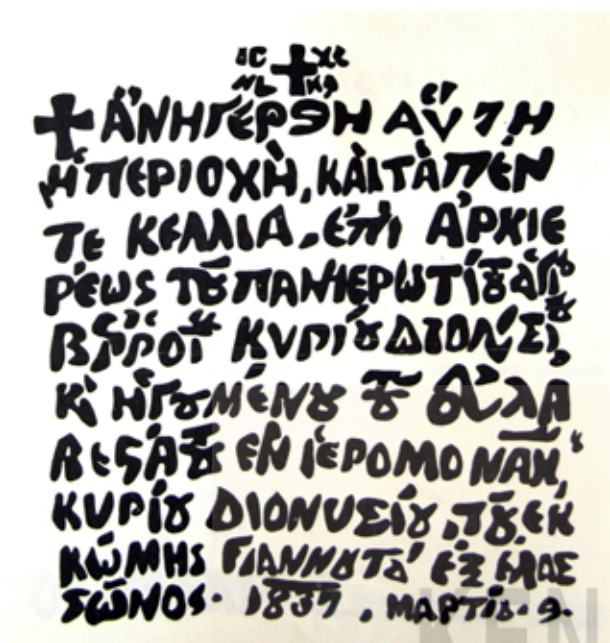 ΙC ΧC
ΝΙ ΚΑ
✝ ἈΝΗΓΈΡΘΗ ΑὝΤΗ
Ἡ ΠΕΡΙΟΧῊ, ΚΑῚ ΤᾺ ΠΈΝ
ΤΕ ΚΕΛΛΙΑ, ἘΠῚ ἈΡΧΙΕ
ΡΈΩΣ ΤȢ͂ ΠΑΝΙΕΡΩΤΊȢ
ΚΥΡΊȢ ΔΙΟΝΥΣΊ
Κ̀ ἩΓȢΜΈΝȢ ΤȢ͂
ΒΕϚΆΤȢ ἘΝ ἹΕΡΟΜΟΝΑΧ
ΚΥΡΊȢ ΔΙΟΝΥΣΊȢ, ΤȢ͂ ἘΚ
ΚΏΜΗΣ ΓΙΑΝΝȢΤΆ ἘΞ ΜΑΣ
ΣΏΝΟΣ. 1837, ΜΑΡΤΊȢ. 9.
KEN